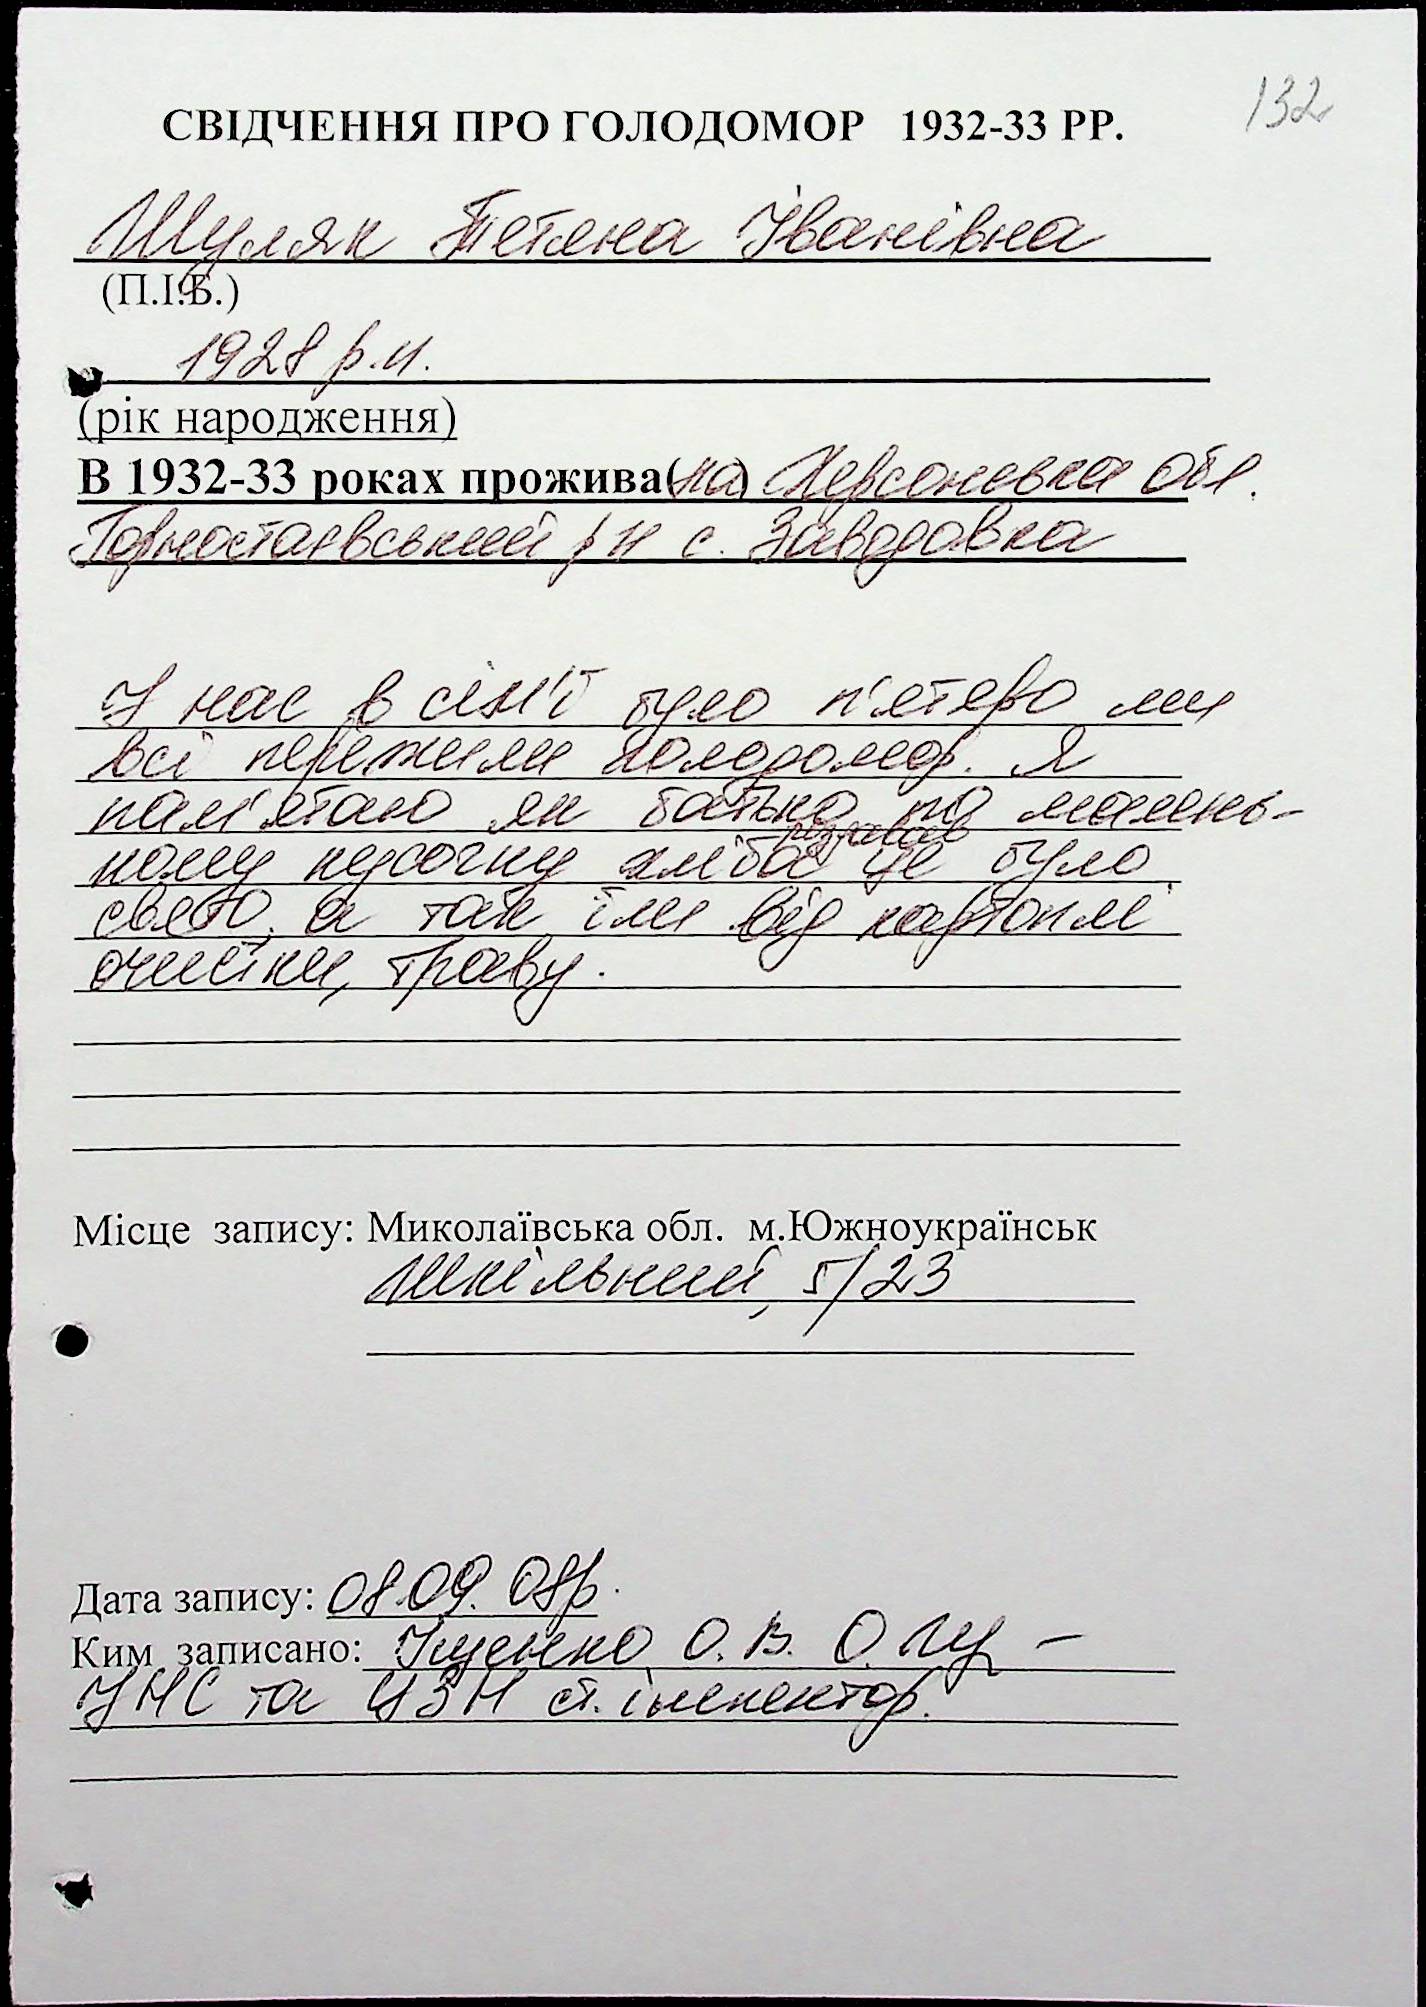 132
СВІДЧЕННЯ ПРО ГОЛОДОМОР 1932-33 РР.
Шуляк Тетяна Іванівна
(П.І.Б.)
1928 р.н.
(рік народження)
В 1932-33 роках прожива(ла) Херсонська обл.
Горностаєвський р-н с. Заводовка
У нас в сім'ї було п'ятеро ми
всі пережили голодомор. Я
пам'ятаю як батько по малень-
роздавав
кому кусочку хліба це було
свято, а так їли від картоплі
очистки, траву.
Місце запису: Миколаївська обл. м.Южноукраїнськ
Шкільний, 5/23
Дата запису: 08.09.08р.
Ким записано: Іщенко О.В.
УНС та ЦЗН ст. інспектор.